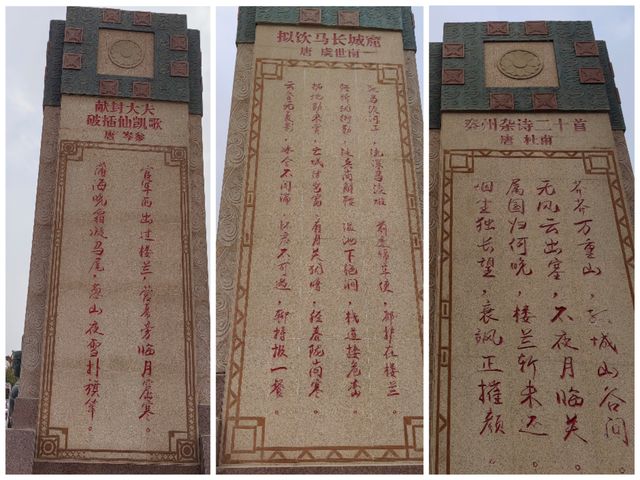 献封大夫
破播仙凯歌
唐 岑参
官军西出过楼兰,营幕傍临月窟寒。
蒲海晓霜凝马尾,葱山夜雪扑旗竿。
拟饮马长城窟
唐 虞世南
驰马渡河干,流深马渡难。前逢锦车使,都护在楼兰。
轻骑犹衔勒,疑兵尚解鞍。温池下绝涧,栈道接危峦。
拓地勋未赏,亡城律岂宽。有月关犹暗,经春陇尚寒。
云昏无复影,冰合不闻湍。怀君不可遇,聊持报一餐。
秦州杂诗二十首
唐 杜甫
莽莽万重山,孤城山谷间
无风云出塞,不夜月临关
属国归何晚,楼兰斩未还
烟尘独长望,衰飒正摧颜